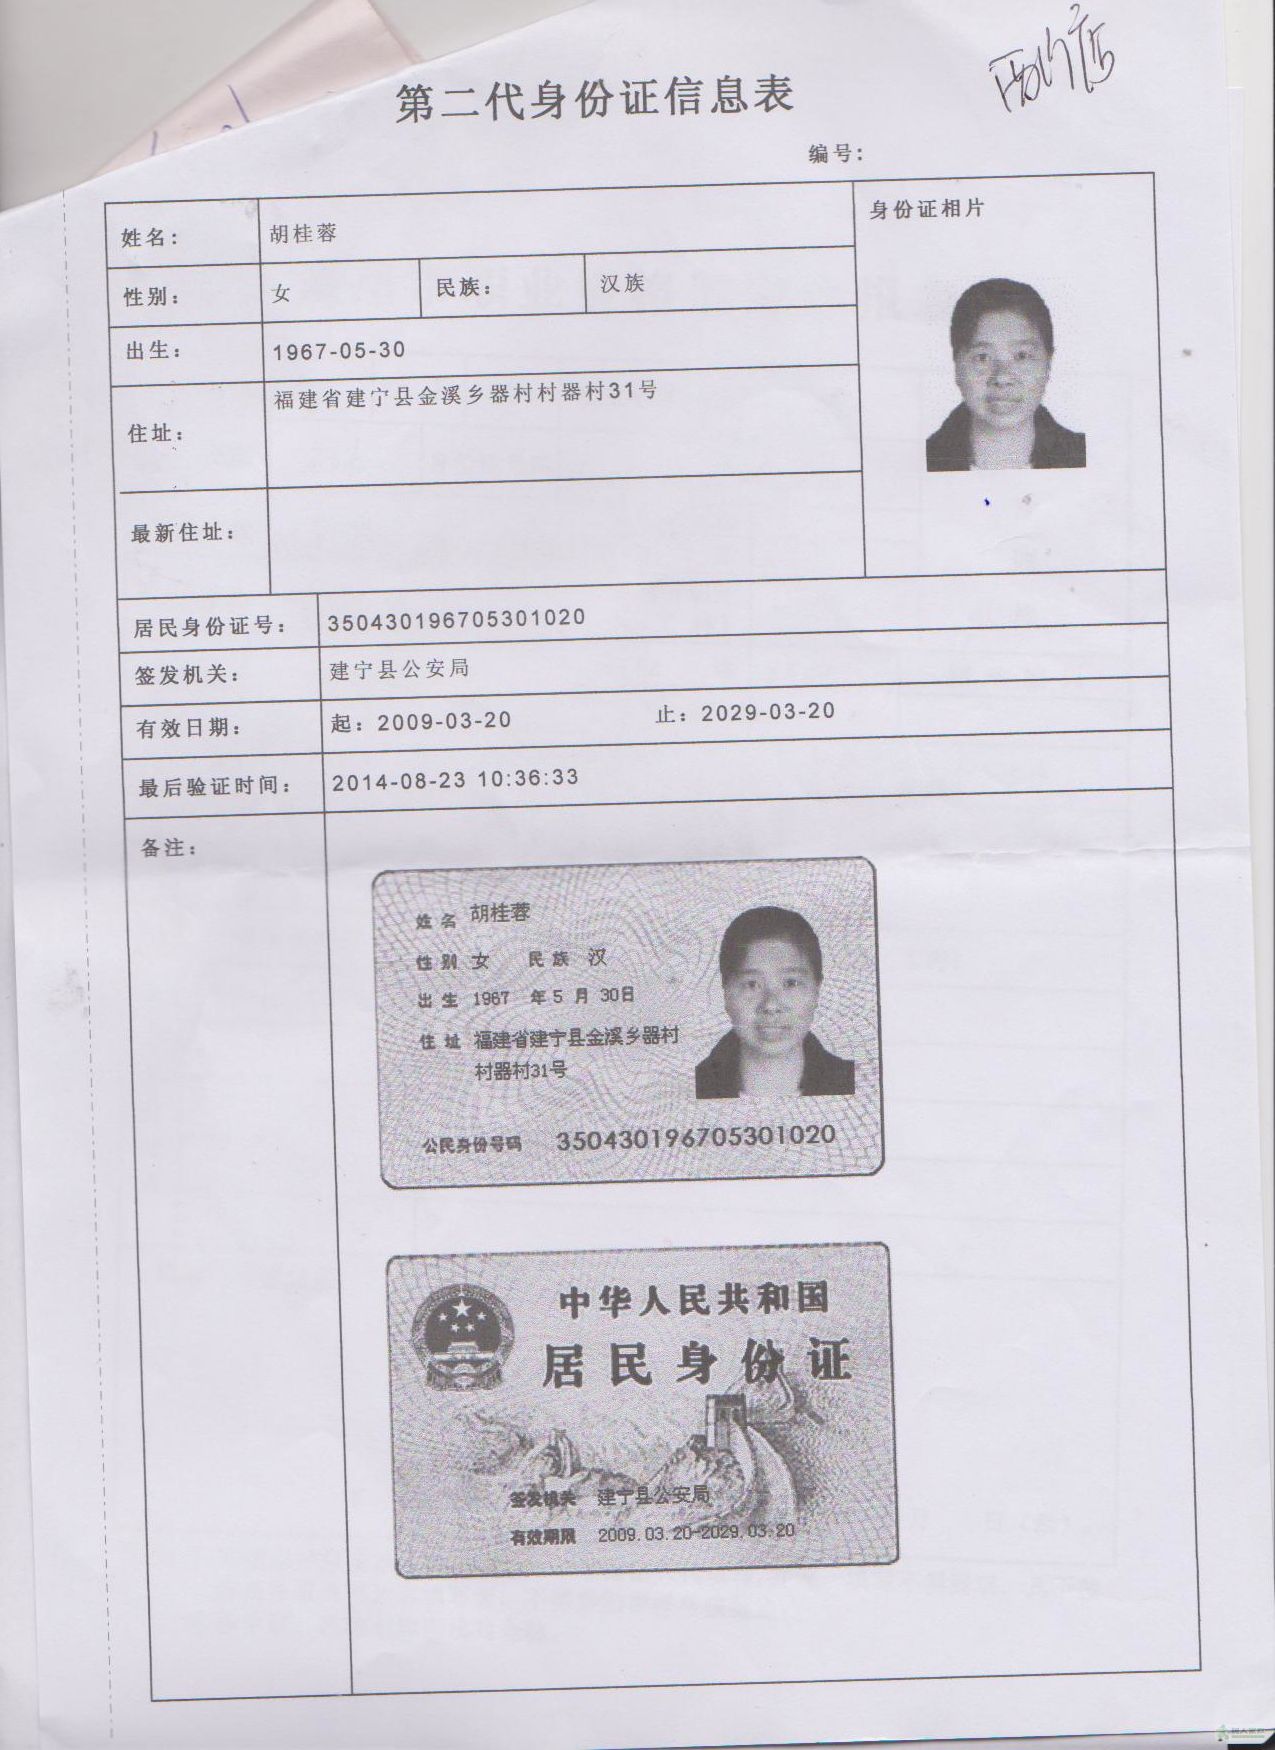 第二代身份证信息表
编号:
姓名: 胡桂蓉 身份证相片
性别: 女 民族: 汉族
出生: 1967-05-30
住址: 福建省建宁县金溪乡器村村器村31号
最新住址:
居民身份证号: 350430196705301020
签发机关: 建宁县公安局
有效日期: 起: 2009-03-20 止: 2029-03-20
最后验证时间: 2014-08-23 10:36:33
备注:
姓名 胡桂蓉
性别 女 民族 汉
出生 1967 年 5 月 30日
住址 福建省建宁县金溪乡器村
村器村31号
公民身份号码 350430196705301020
中华人民共和国
居民身份证
签发机关 建宁县公安局
有效期限 2009.03.20-2029.03.20